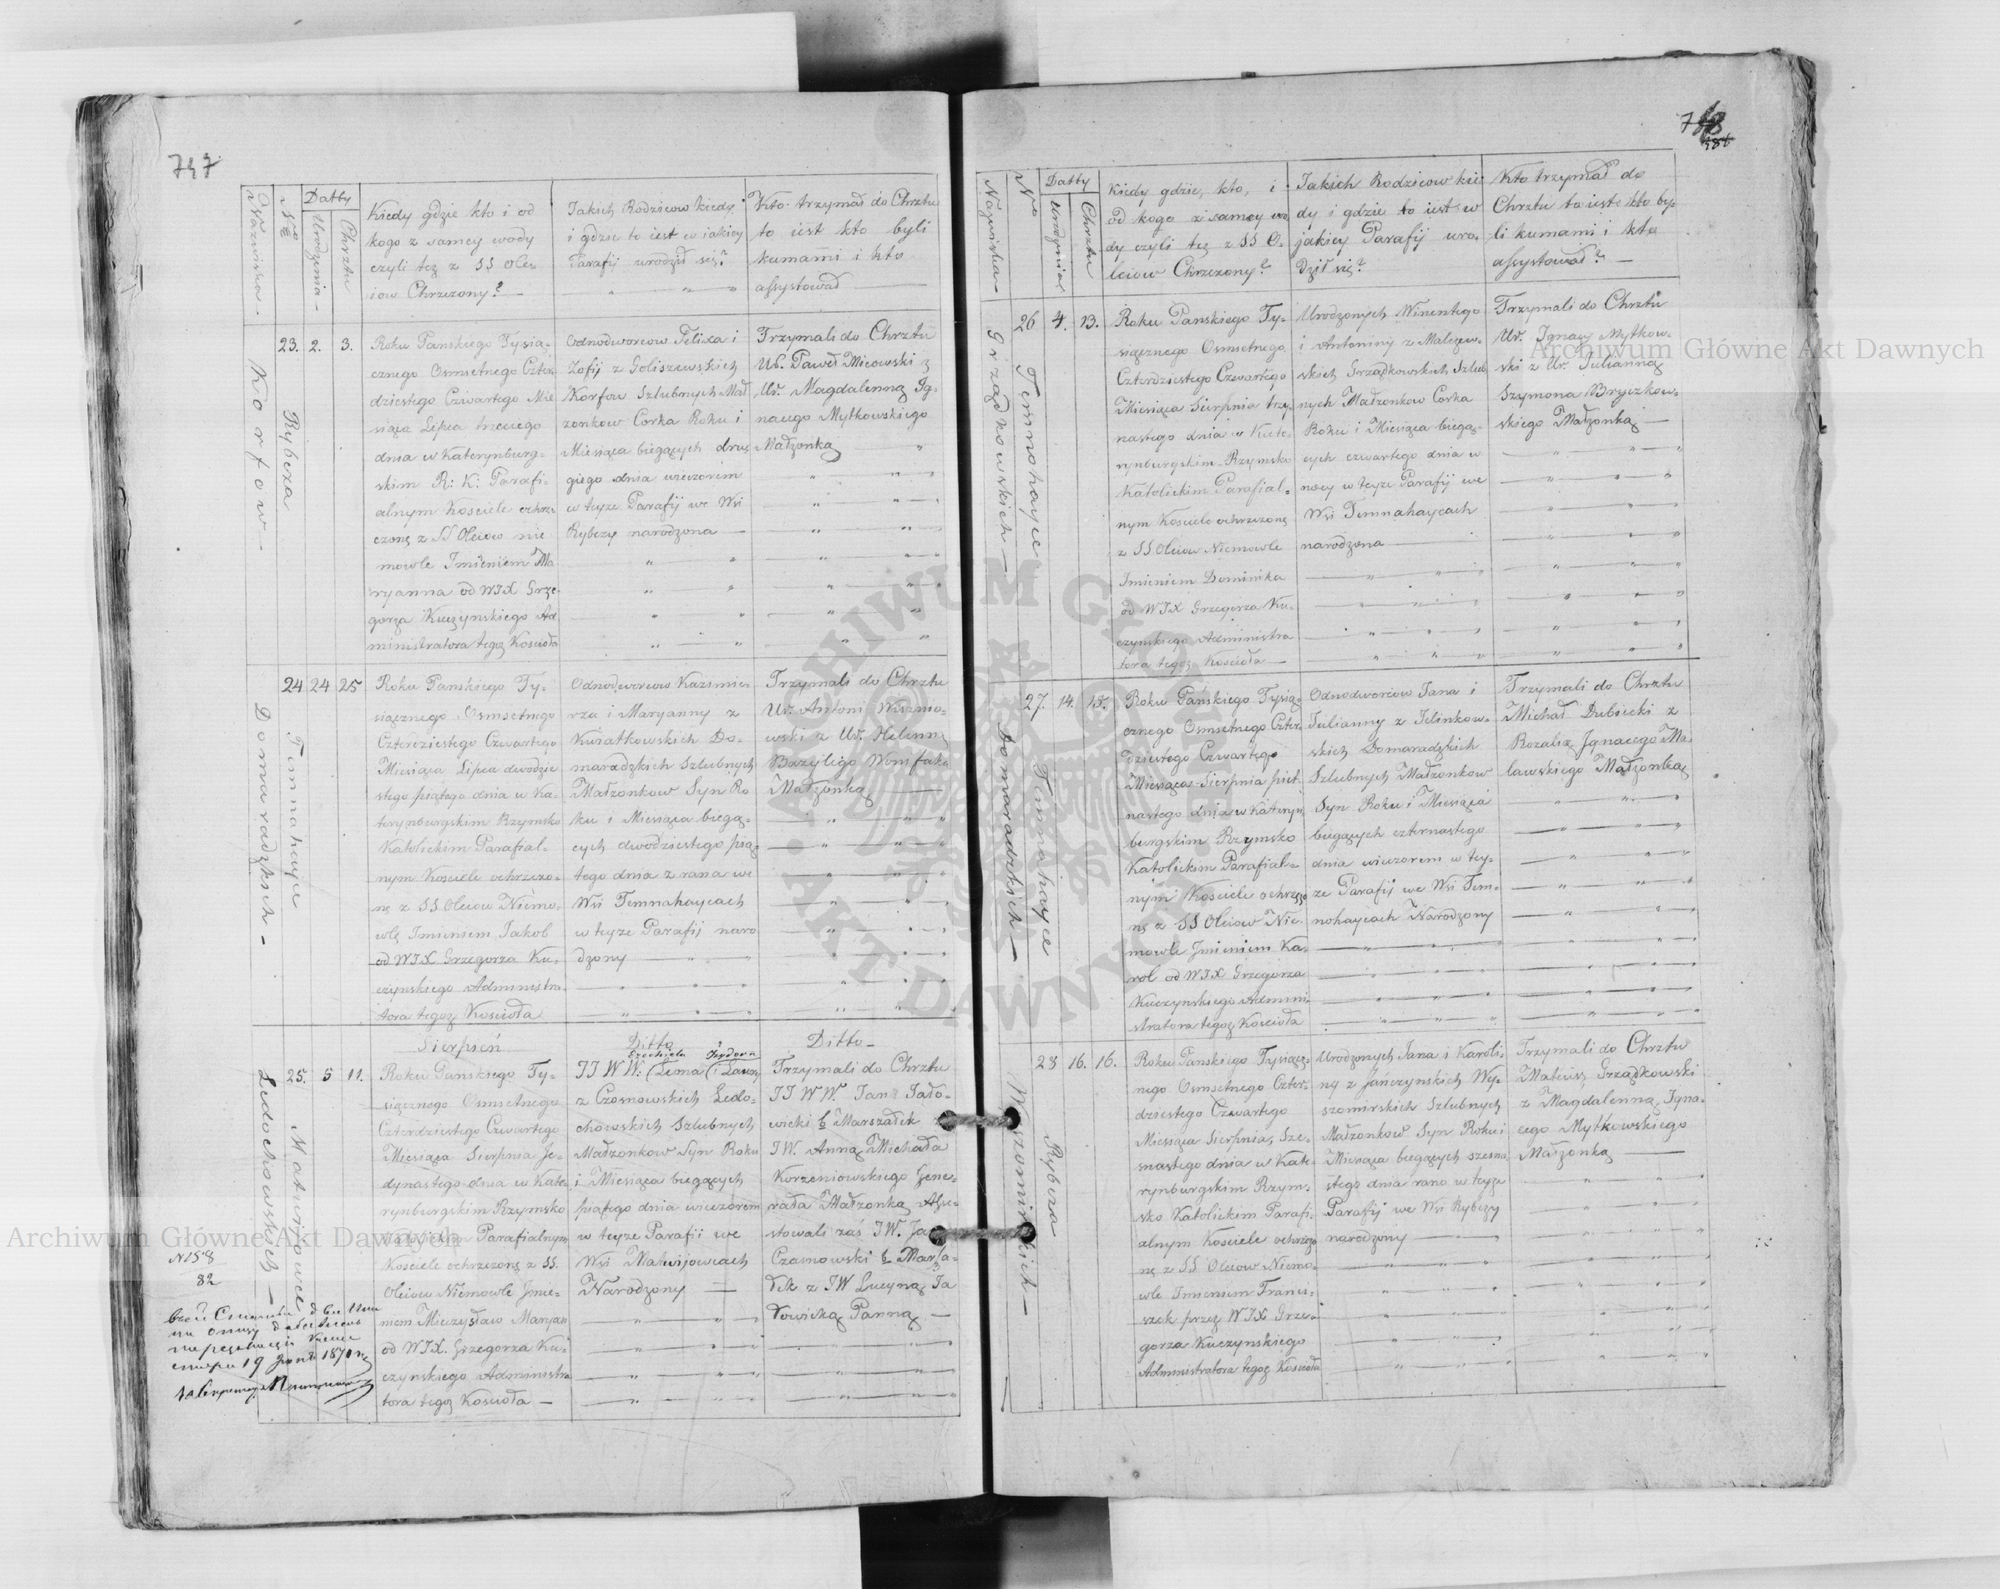 747
Nazwiska
N<sup>ro</sup>
Datty
Urodzenia
Chrztu
Kiedy gdzie kto i od
kogo z samey wody
czyli też z SS Ole-
iow Chrzczony? —
Jakich Rodzicow kiedy
i gdzie to iest w iakiey
Parafij urodził się?
Kto trzymał do Chrztu
to iest kto byli
kumami i kto
assystował —
Korfow —
Rybcza
23. 2. 3.
Roku Panskiego Tysią-
cznego Osmsetnego Czter
dziestego Czwartego Mie
siąca Lipca trzeciego
dnia w Katerynburg-
skim R: K: Parafi-
alnym Kosciele ochrz
czone z SS Oleiow nie
mowle Imieniem Ma
ryanna od WJX Grze-
gorza Kuczynskiego Ad
ministratora tegoż Kościoła
Odnodworcow Felixa i
Zofij z Goliszewskich
Korfow Szlubnych Mał
zonkow Corka Roku i
Miesiąca bieżących dru-
giego dnia wieczorem
w teyze Parafij we Wsi
Rybczy narodzona —
Trzymali do Chrztu
Ur. Paweł Micowski z
Ur. Magdalenną Ig-
nacego Mytkowskiego
Małzonką —
Domaradzkich —
Temnahayce
24 24 25
Roku Panskiego Ty-
siącznego Osmsetnego
Czterdziestego Czwartego
Miesiąca Lipca dwudzie
stego piątego dnia w Ka-
terynburgskim Rzymsko
Katolickim Parafial-
nym Kosciele ochrzczo-
ne z SS Oleiow Niemo-
wlę Imieniem Jakob
od WJX Grzegorza Ku-
czynskiego Administra-
tora tegoż Kościoła
Odnodworcow Kazimie-
rza i Maryanny z
Kwiatkowskich Do-
maradzkich Szlubnych
Małzonkow Syn Ro
ku i Miesiąca bieżą-
cych dwodziestego pią-
tego dnia z rana we
Wsi Temnahaycach
w teyze Parafij naro
dzony —
Trzymali do Chrztu
Ur. Antoni
wski z Ur. Helenną
Bazyligo
Małzonką —
Sierpień
Ditto
Ditto —
Ledochowskich —
Matwijowce
25. 5 11.
Roku Panskiego Ty-
siącznego Osmsetnego
Czterdziestego Czwartego
Miesiąca Sierpnia Je-
dynastego dnia w Kate-
rynburgskim Rzymsko
Katolickim Parafialnym
Kosciele ochrzczone z SS.
Oleiow Niemowle Imie-
niem Mieczysław Maryan
od WJX. Grzegorza Ku-
czynskiego Administra
tora tegoż Kościoła —
JJ WW: (Leona (i
z Czosnowskich Ledo-
chowskich Szlubnych
Małzonkow Syn Roku
i Miesiąca bieżących
piątego dnia wieczorem
w teyze Parafii we
Wsi Matwijowcach
Narodzony —
Trzymali do Chrztu
JJ WW. Jan Jało-
wicki b Marszałek z
JW. Anną Michała
Korzeniowskiego Gene-
rała Małzonką Assy-
stowali zaś JW. Ja
Czosnowski b Marsza-
łek z JW Lucyną Ja
łowicką Panną —
N 158
82
19 1871
748
Nazwiska
N<sup>ro</sup>
Datty
Urodzenia
Chrztu
Kiedy gdzie, kto, i
od kogo z samey wo
dy czyli też z SS O-
leiow Chrzczony?
Jakich Rodzicow kie
dy i gdzie to iest w
jakiey Parafij uro-
dził się?
Kto trzymał do
Chrztu to iest kto by-
li kumami i kto
assystował? —
Grządkowskich —
Temnohayce
26 4. 13.
Roku Panskiego Ty-
siącznego Osmsetnego
Czterdziestego Czwartego
Miesiąca Sierpnia trzy
nastego dnia w Kate-
rynburgskim Rzymsko
Katolickim Parafial-
nym Kosciele ochrzczone
z SS Oleiow Niemowle
Imieniem Dominika
od WJX Grzegorza Ku-
czynskiego Administra
tora tegoż Kościoła —
Urodzonych Wincentego
i Antoniny z Malczew-
skich Grządkowskich Szlub
nych Małzonkow Corka
Roku i Miesiąca bieżą-
cych czwartego dnia w
nocy w teyze Parafij we
Wsi Temnahaycach
narodzona —
Trzymali do Chrztu
Ur. Ignacy Mytkow-
ski z Ur. Julianną
Szymona Bryczkow-
skiego Małzonką —
Domaradzkich —
Temnahayce
27. 14. 15.
Roku Panskiego Tysią-
cznego Osmsetnego Czter-
dziestego Czwartego
Miesiąca Sierpnia piet-
nastego dnia w Kateryn
burgskim Rzymsko
Katolickim Parafial-
nym Kosciele ochrzczo
ne z SS Oleiow Nie-
mowle Imieniem Ka-
rol od WJX Grzegorza
Kuczynskiego Admini-
stratora tegoż Kościoła
Odnodworcow Jana i
Julianny z Jelinkow-
skich Domaradzkich
Szlubnych Małzonkow
Syn Roku i Miesiąca
bieżących czternastego
dnia wieczorem w tey-
ze Parafij we Wsi Tem-
nohaycach Narodzony
Trzymali do Chrztu
Michał Dubiecki z
Rozalią Ignacego Ma-
lawskiego Małzonką
Wyszomirskich —
Rybcza
28 16. 16.
Roku Panskiego Tysiącz-
nego Osmsetnego Czter-
dziestego Czwartego
Miesiąca Sierpnia, Sze-
snastego dnia w Kate-
rynburgskim Rzym-
sko Katolickim Parafi-
alnym Kosciele ochrzczo
ne z SS Oleiow Niemo-
wle Imieniem Franci-
szek przez WJX Grze-
gorza Kuczynskiego
Administratora tegoż Kościoła
Urodzonych Jana i Karoli-
ny z Jańczynskich Wy-
szomirskich Szlubnych
Małzonkow Syn Roku i
Miesiąca bieżących szesna-
stego dnia rano w teyze
Parafij we Wsi Rybczy
narodzony —
Trzymali do Chrztu
Mateusz Grządkowski
z Magdalenną Igna-
cego Mytkowskiego
Małzonką —
Archiwum Główne Akt Dawnych
Archiwum Główne Akt Dawnych
ARCHIWUM GŁÓWNE
AKT DAWNYCH